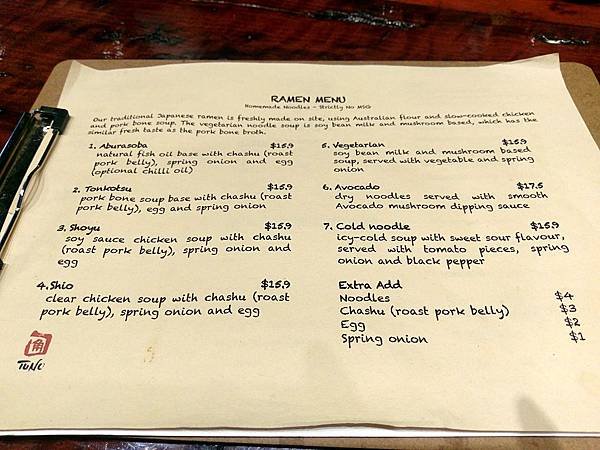 RAMEN MENU
Homemade Noodles - Strictly No MSG
Our traditional Japanese ramen is freshly made on site, using Australian flour and slow-cooked chicken
and pork bone soup. The vegetarian noodle soup is soy bean milk and mushroom based, which has the
similar fresh taste as the pork bone broth.
1. Aburasoba $15.9
natural fish oil base with chashu (roast
pork belly), spring onion and egg
(optional chilli oil)
2. Tonkotsu $15.9
pork bone soup base with chashu (roast
pork belly), egg and spring onion
3. Shoyu $15.9
soy sauce chicken soup with chashu
(roast pork belly), spring onion and
egg
4.Shio $15.9
clear chicken soup with chashu (roast
pork belly), spring onion and egg
5. Vegetarian $15.9
soy bean milk and mushroom based
soup, served with vegetable and spring
onion
6. Avocado $17.5
dry noodles served with smooth
Avocado mushroom dipping sauce
7. Cold noodle $15.9
icy-cold soup with sweet sour flavour,
served with tomato pieces, spring
onion and black pepper
Extra Add
Noodles $4
Chashu (roast pork belly) $3
Egg $2
Spring onion $1
角